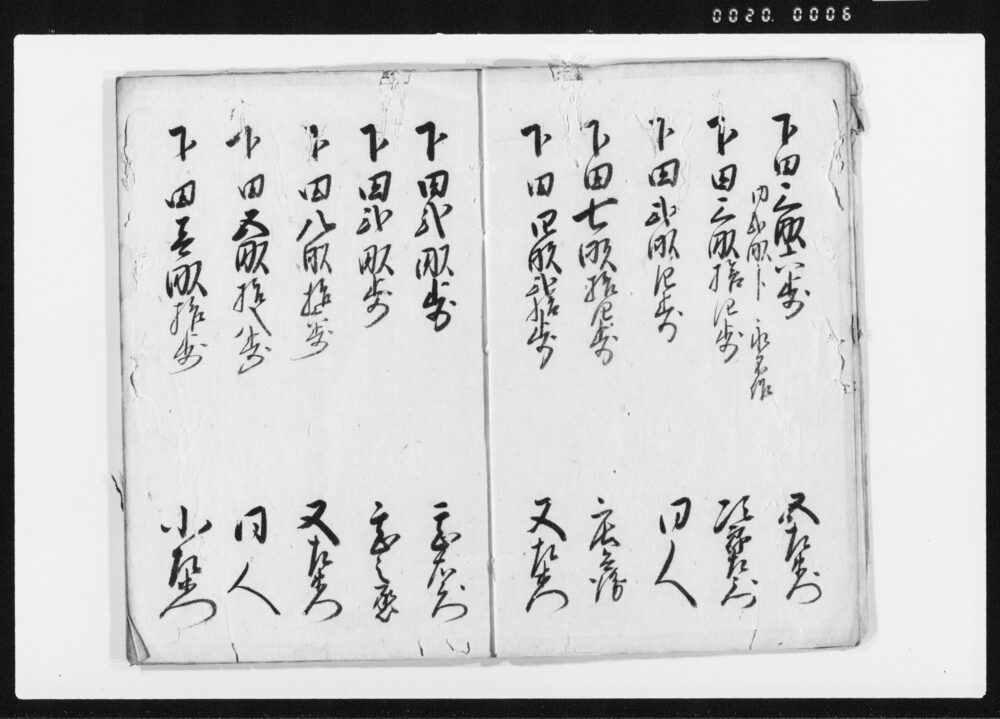 0020. 0006
下田三畝歩
又左衛門
内弐畝卜 永不作
下田三畝拾四歩
郎左衛門
下田弐畝四歩
同人
下田七畝拾四歩
下田四畝弐拾歩
又左衛門
下田弐畝歩
右衛門
下田弐畝歩
下田八畝拾歩
又左衛門
下田五畝拾八歩
同人
下田五畝拾歩
小左衛門